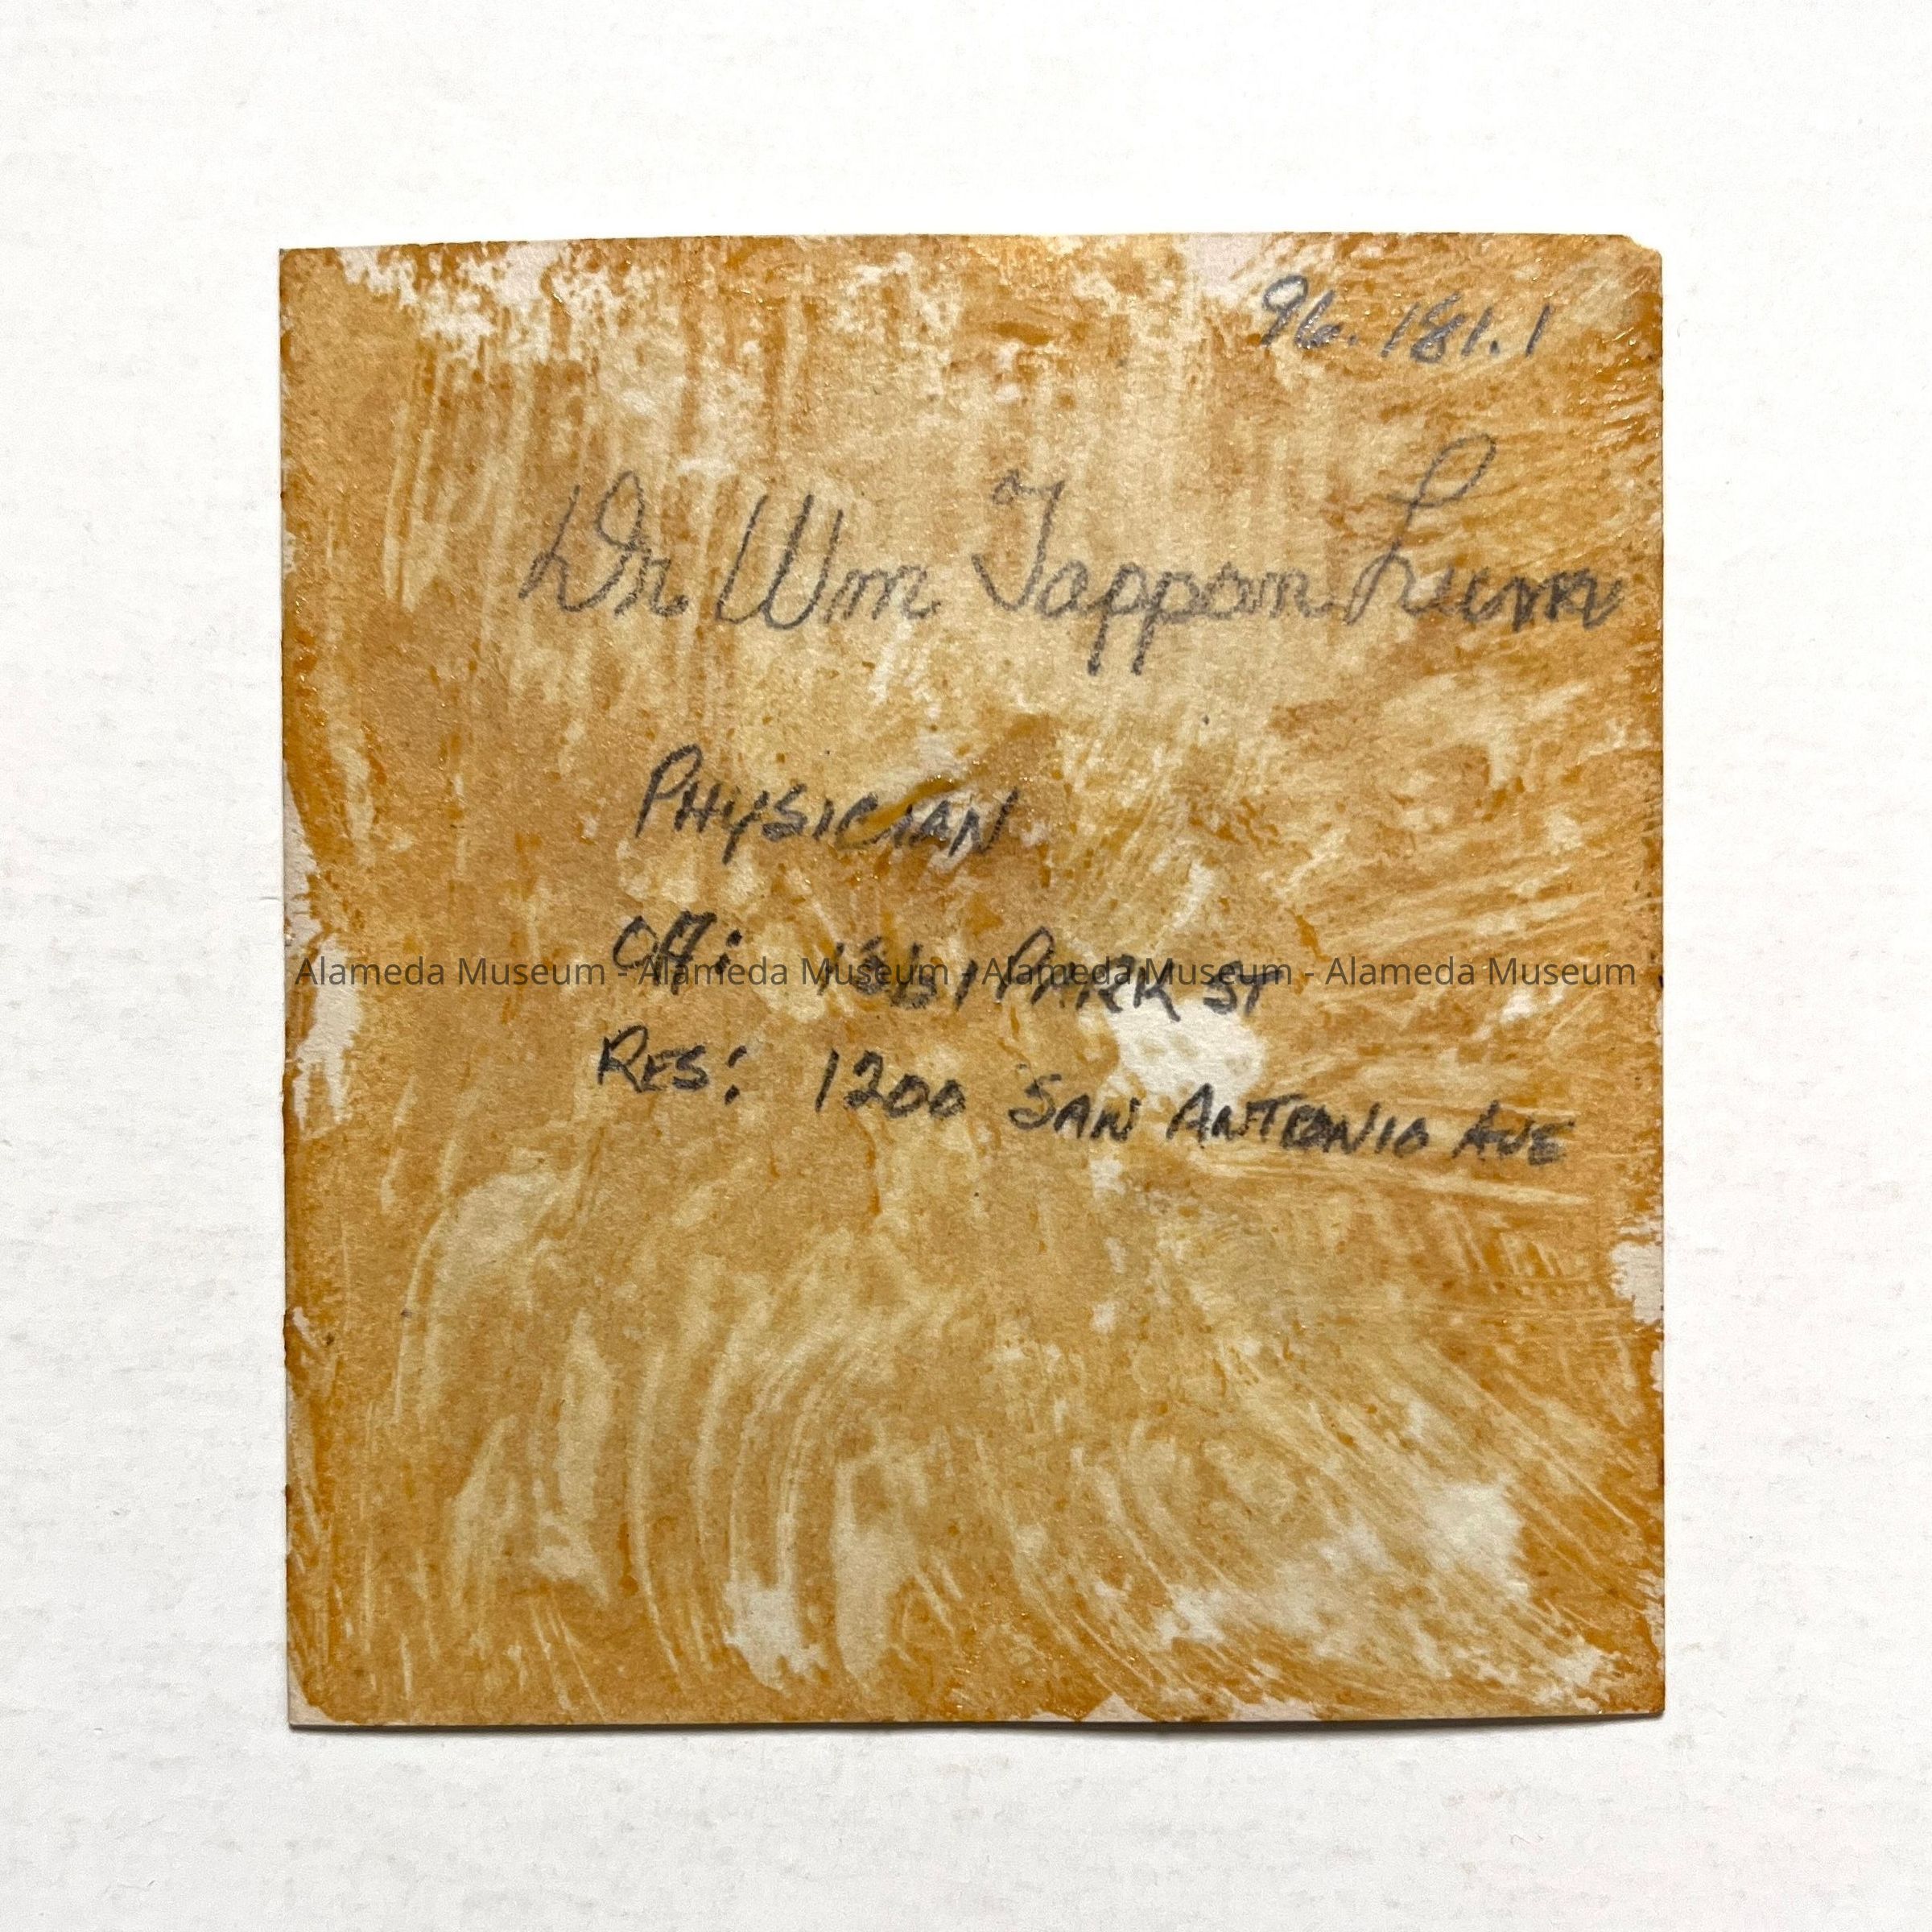 96.181.1
Dr Wm Tappan Lum
PHYSICIAN
Off: PARK ST
Alameda Museum - Alameda Museum - Alameda Museum - Alameda Museum
RES: 1200 SAN ANTONIO AVE